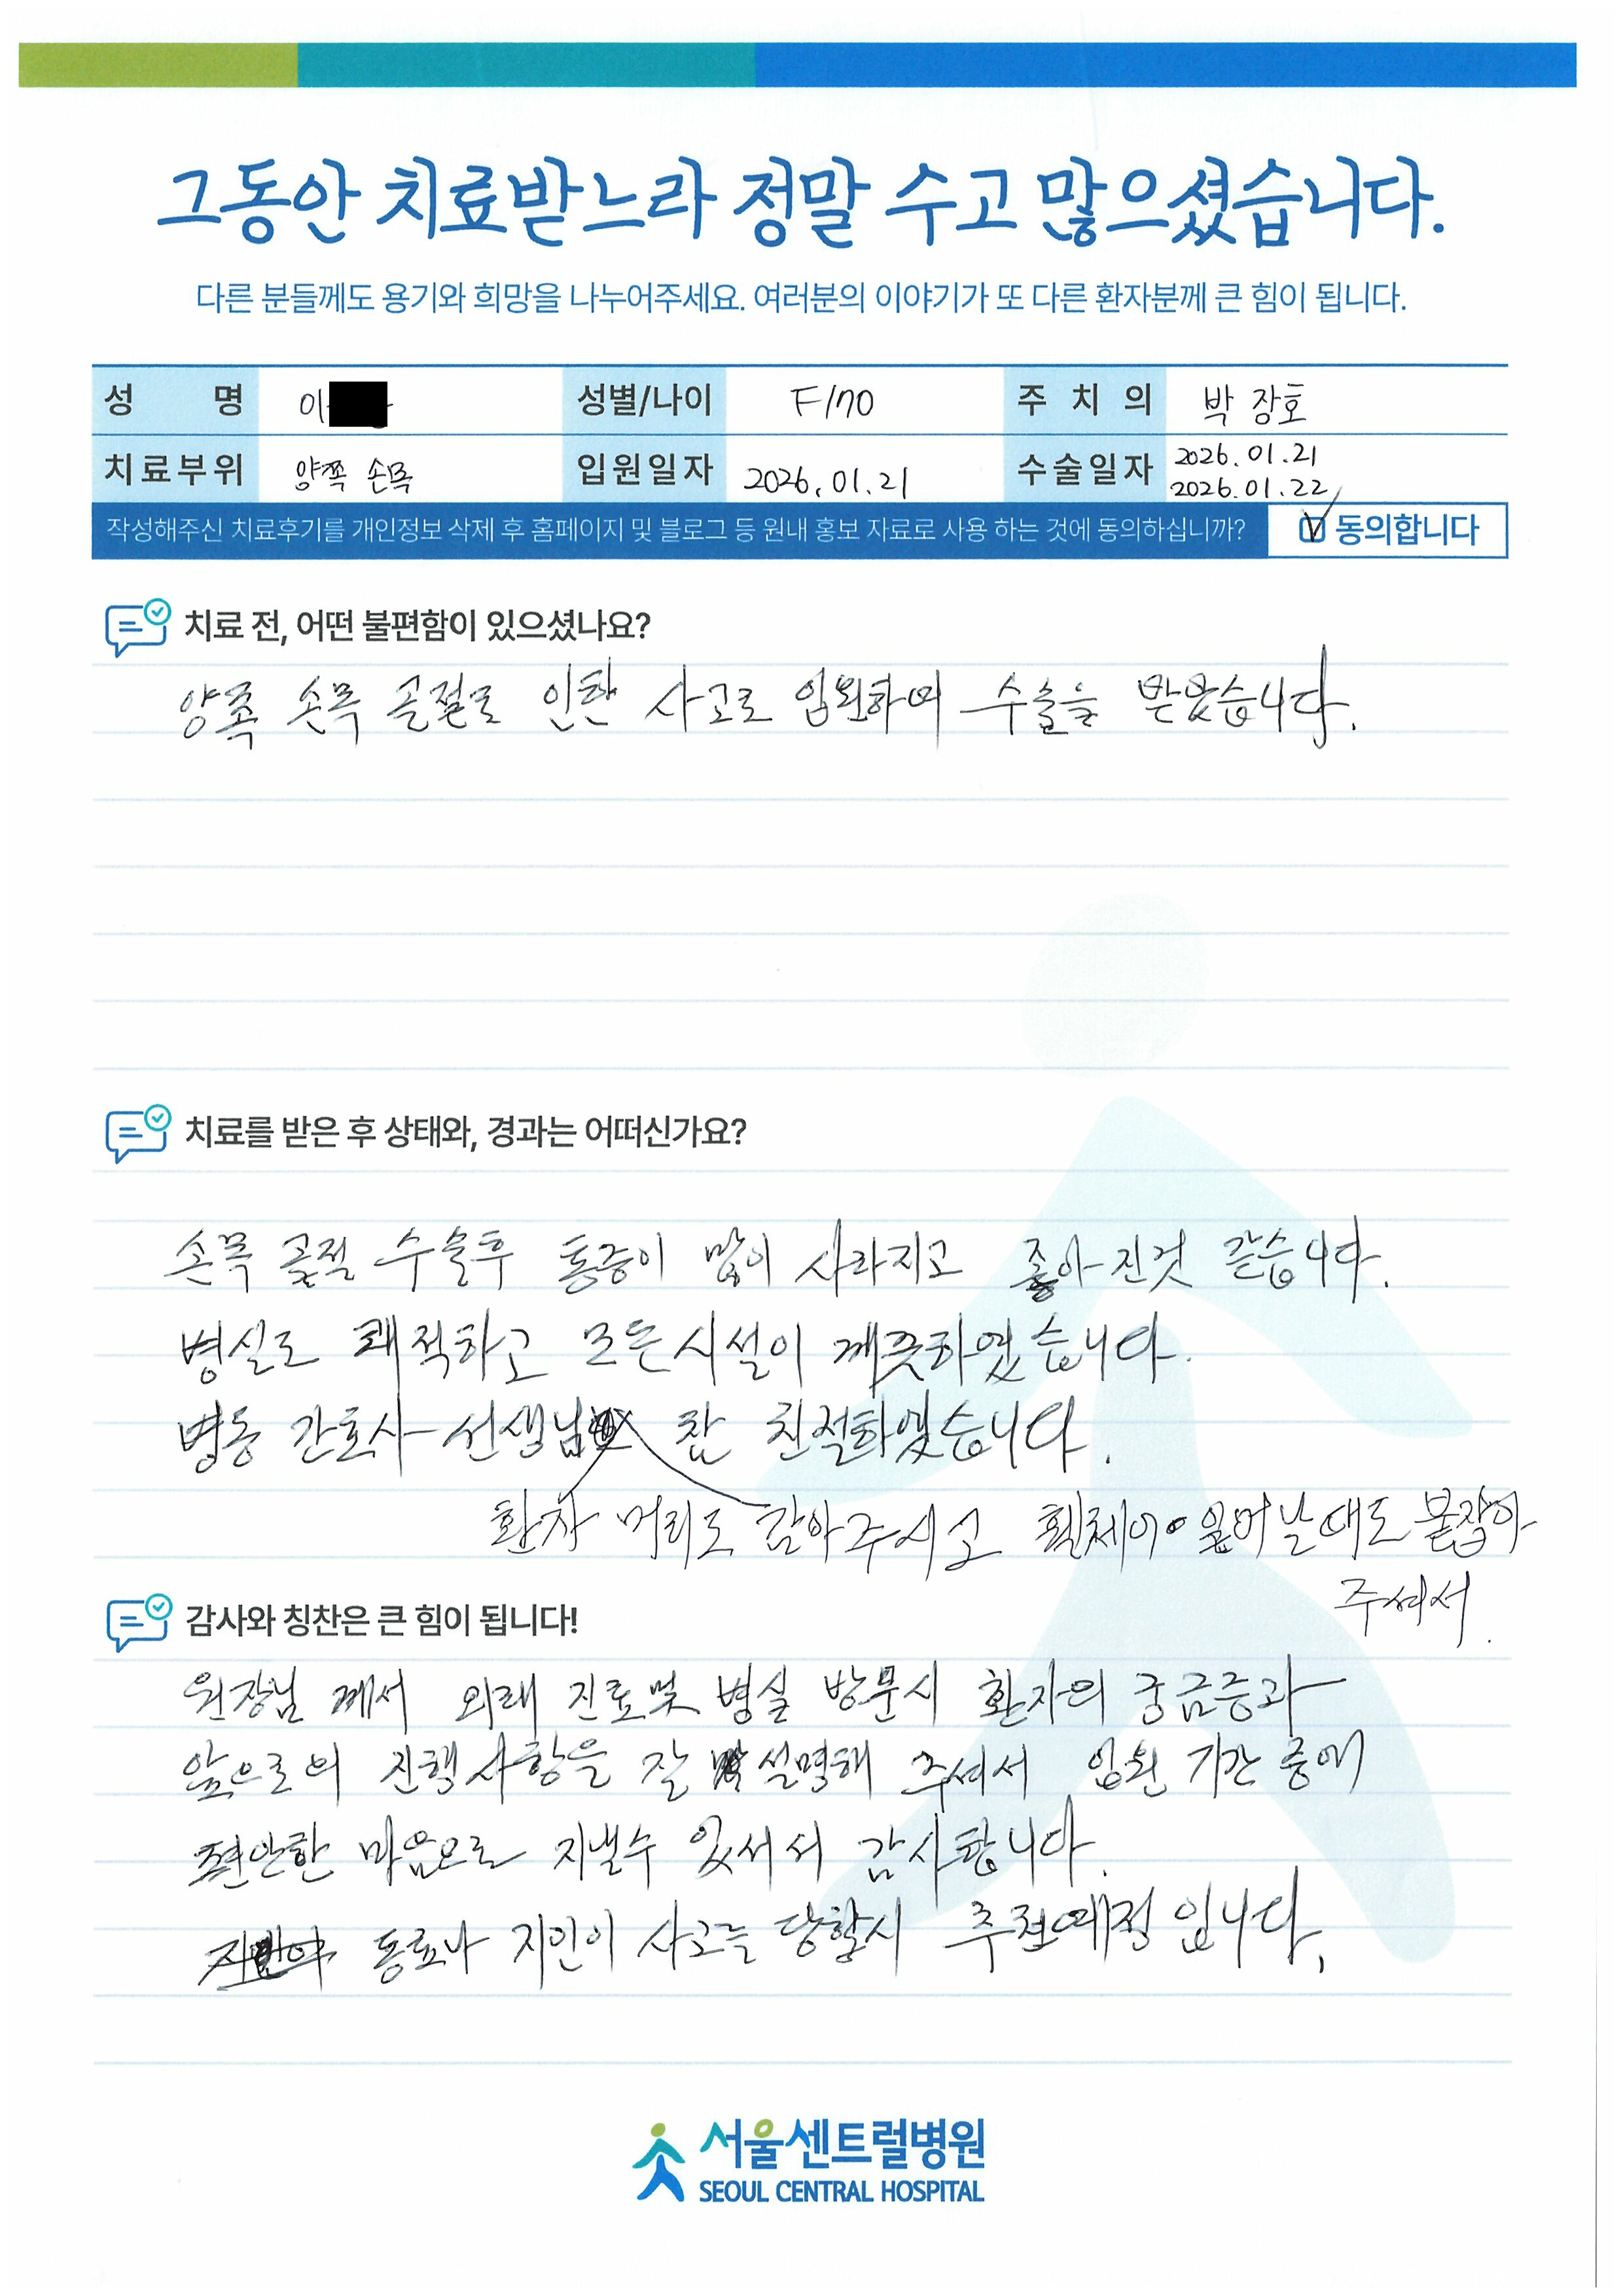 그동안 치료받느라 정말 수고 많으셨습니다.
다른 분들께도 용기와 희망을 나누어주세요. 여러분의 이야기가 또 다른 환자분께 큰 힘이 됩니다.
성 명 이 성별/나이 F/70 주 치 의 박 장호
치료부위 양쪽 손목 입원일자 2026.01.21 수술일자 2026.01.21
2026.01.22
작성해주신 치료후기를 개인정보 삭제 후 홈페이지 및 블로그 등 원내 홍보 자료로 사용 하는 것에 동의하십니까? 동의합니다
치료 전, 어떤 불편함이 있으셨나요?
양쪽 손목 골절로 인한 사고로 입원하며 수술을 받았습니다.
치료를 받은 후 상태와, 경과는 어떠신가요?
손목 골절 수술후 통증이 많이 사라지고 좋아진것 같습니다.
병실도 쾌적하고 모든시설이 깨끗하였습니다.
병동 간호사 선생님 참 친절하였습니다.
환자 머리도 감아주시고 휠체어 일어날때도 붙잡아
주셔서.
감사와 칭찬은 큰 힘이 됩니다!
원장님 께서 외래 진료및 병실 방문시 환자의 궁금증과
앞으로의 진행사항을 잘 설명해 주셔서 입원 기간 중에
편안한 마음으로 지낼수 있서서 감사합니다.
동료나 지인이 사고를 당할시 추천예정 입니다.
서울센트럴병원
SEOUL CENTRAL HOSPITAL